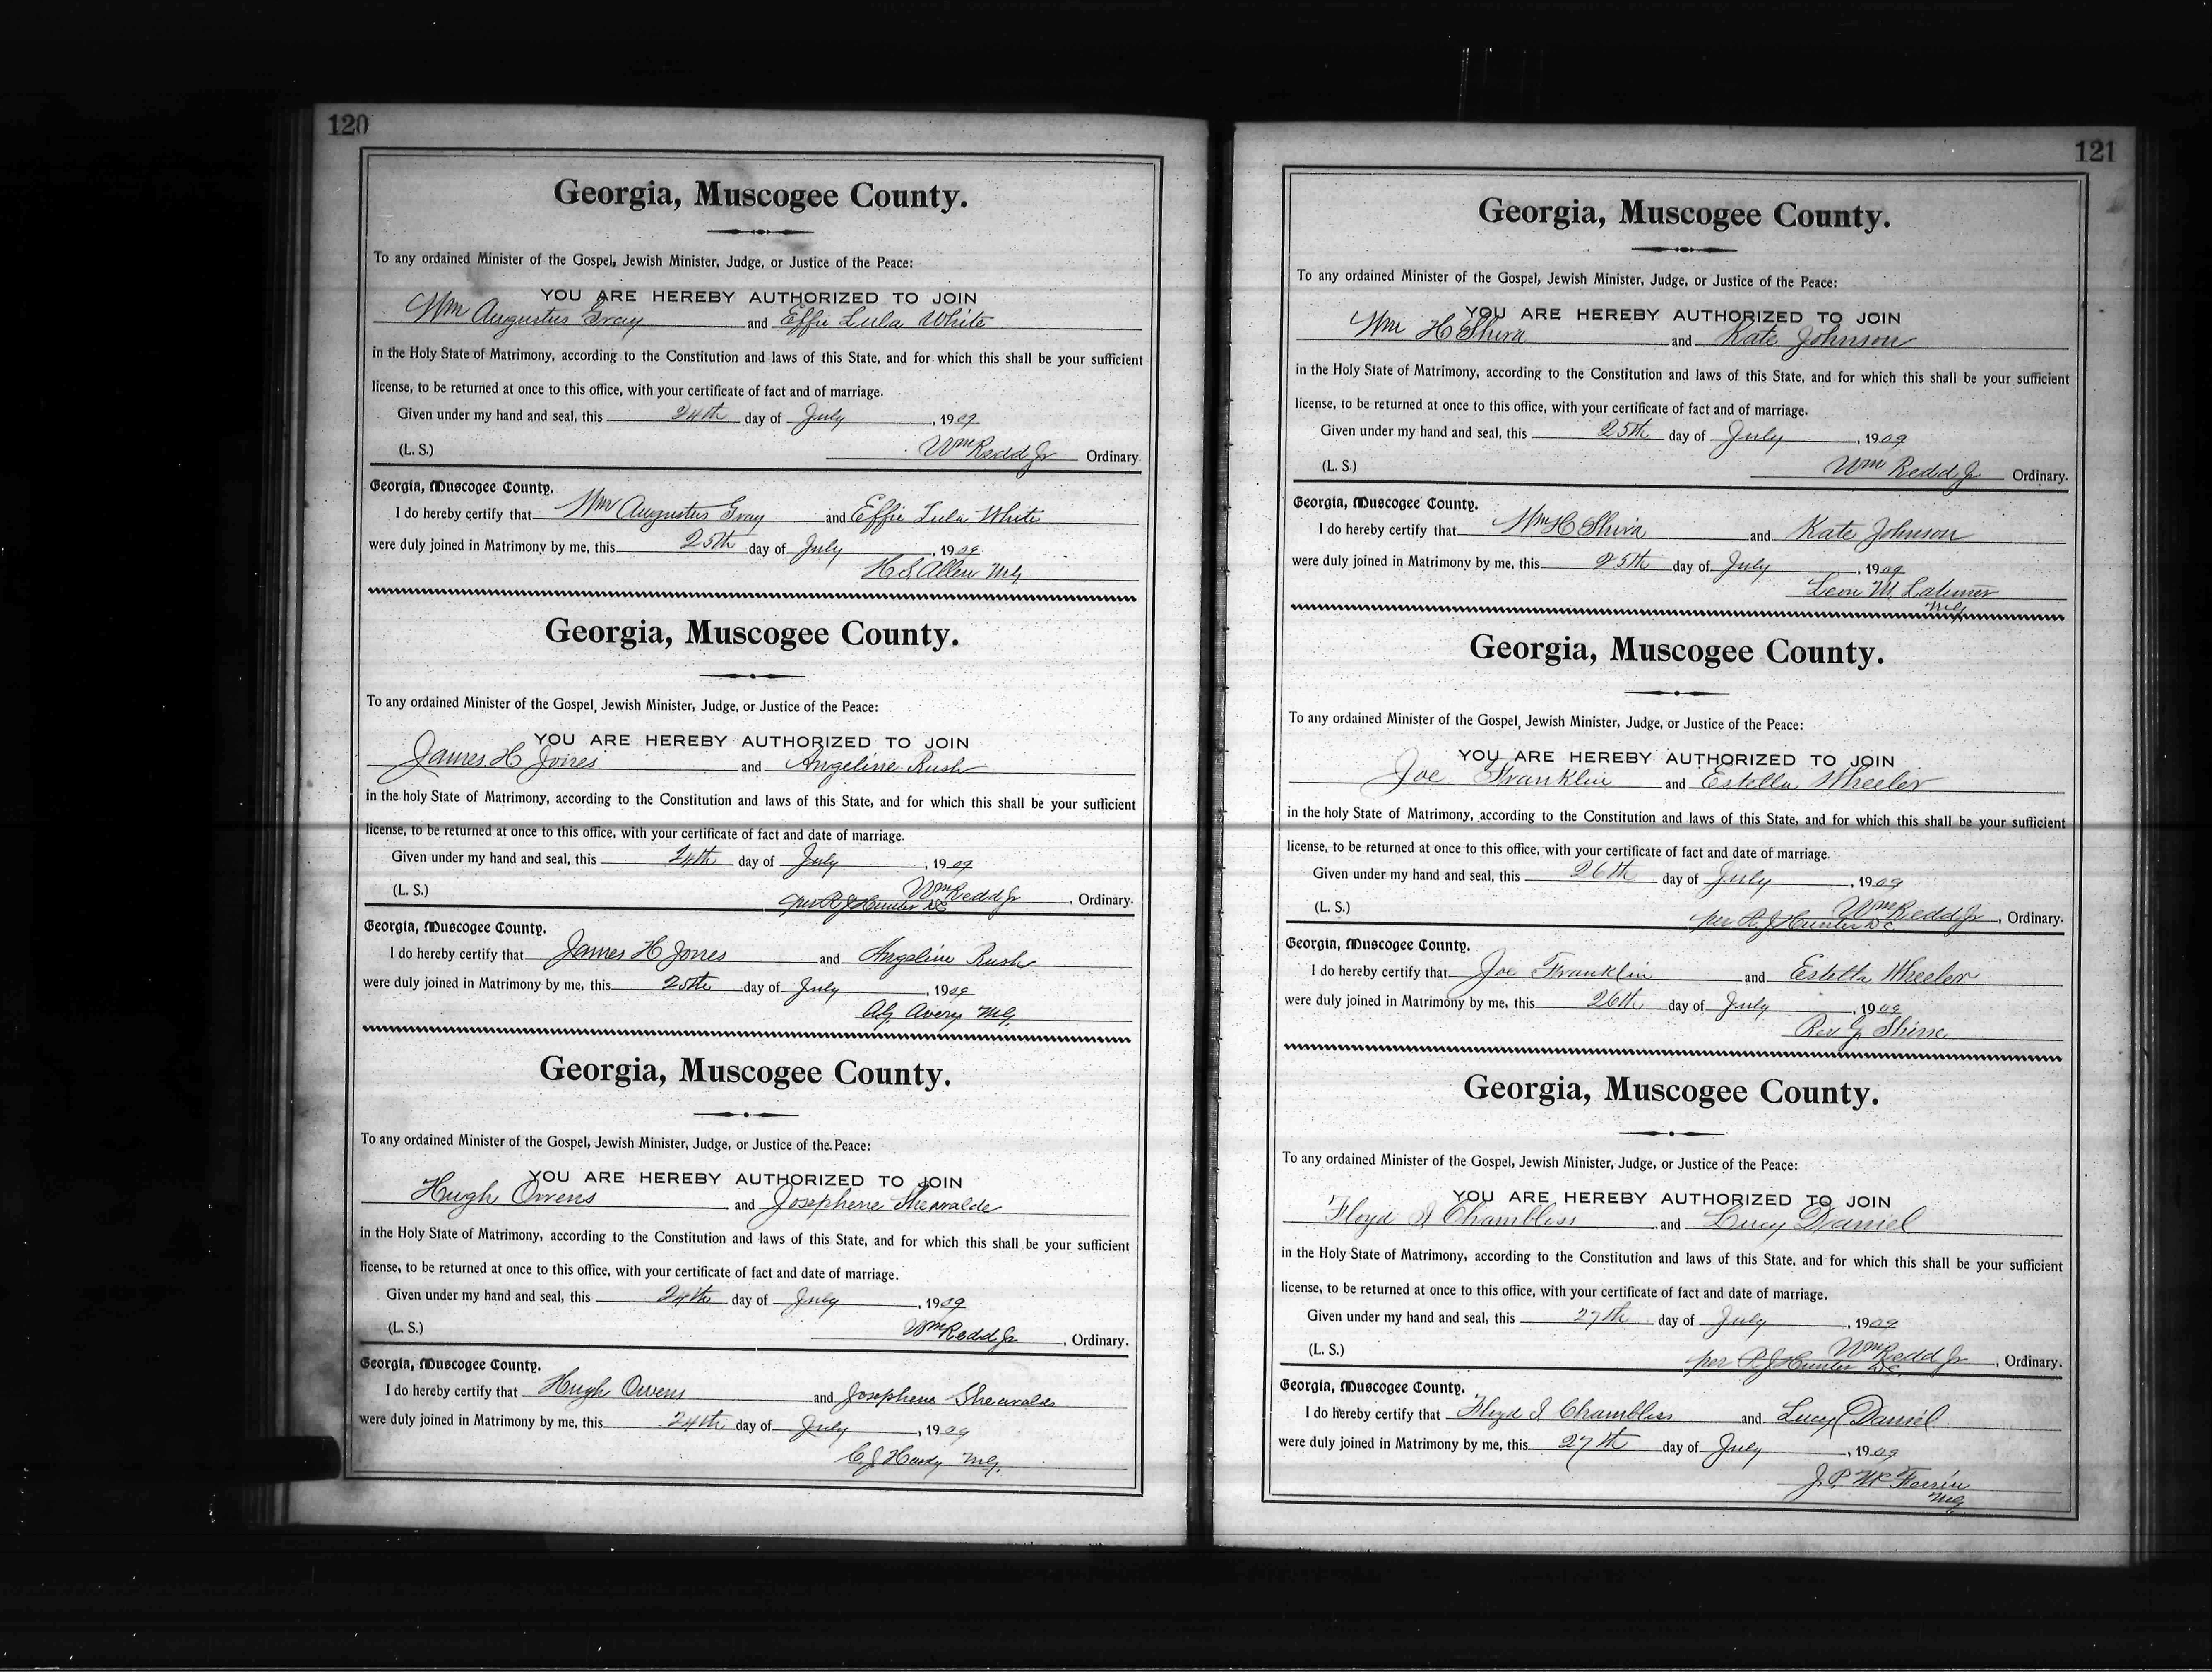 120
Georgia, Muscogee County.
To any ordained Minister of the Gospel, Jewish Minister, Judge, or Justice of the Peace:
YOU ARE HEREBY AUTHORIZED TO JOIN
Wm Augustus Gray and Effie Lula White
in the Holy State of Matrimony, according to the Constitution and laws of this State, and for which this shall be your sufficient
license, to be returned at once to this office, with your certificate of fact and of marriage.
Given under my hand and seal, this 24th day of July, 1909
(L. S.) Wm Redd Jr Ordinary.
Georgia, Muscogee County.
I do hereby certify that Wm Augustus Gray and Effie Lula White
were duly joined in Matrimony by me, this 25th day of July, 1909
H S Allen MG
Georgia, Muscogee County.
To any ordained Minister of the Gospel, Jewish Minister, Judge, or Justice of the Peace:
YOU ARE HEREBY AUTHORIZED TO JOIN
James H Jones and Angeline Rush
in the holy State of Matrimony, according to the Constitution and laws of this State, and for which this shall be your sufficient
license, to be returned at once to this office, with your certificate of fact and date of marriage.
Given under my hand and seal, this 24th day of July, 1909
(L. S.) Wm Redd Jr, Ordinary.
per R J Hunter DC
Georgia, Muscogee County.
I do hereby certify that James H Jones and Angeline Rush
were duly joined in Matrimony by me, this 25th day of July, 1909
Avery MG.
Georgia, Muscogee County.
To any ordained Minister of the Gospel, Jewish Minister, Judge, or Justice of the Peace:
YOU ARE HEREBY AUTHORIZED TO JOIN
Hugh Owens and Josephene
in the Holy State of Matrimony, according to the Constitution and laws of this State, and for which this shall be your sufficient
license, to be returned at once to this office, with your certificate of fact and date of marriage.
Given under my hand and seal, this 24th day of July, 1909
(L. S.) Wm Redd Jr, Ordinary.
Georgia, Muscogee County.
I do hereby certify that Hugh Owens and Josephene
were duly joined in Matrimony by me, this 24th day of July, 1909
MG.
121
Georgia, Muscogee County.
To any ordained Minister of the Gospel, Jewish Minister, Judge, or Justice of the Peace:
YOU ARE HEREBY AUTHORIZED TO JOIN
Wm H Shira and Kate Johnson
in the Holy State of Matrimony, according to the Constitution and laws of this State, and for which this shall be your sufficient
license, to be returned at once to this office, with your certificate of fact and of marriage.
Given under my hand and seal, this 25th day of July, 1909
(L. S.) Wm Redd Jr Ordinary.
Georgia, Muscogee County.
I do hereby certify that Wm H Shira and Kate Johnson
were duly joined in Matrimony by me, this 25th day of July, 1909
Leon M. Latimer
MG
Georgia, Muscogee County.
To any ordained Minister of the Gospel, Jewish Minister, Judge, or Justice of the Peace:
YOU ARE HEREBY AUTHORIZED TO JOIN
Joe Franklin and Estella Wheeler
in the holy State of Matrimony, according to the Constitution and laws of this State, and for which this shall be your sufficient
license, to be returned at once to this office, with your certificate of fact and date of marriage.
Given under my hand and seal, this 26th day of July, 1909
(L. S.) Wm Redd Jr, Ordinary.
per R J Hunter DC
Georgia, Muscogee County.
I do hereby certify that Joe Franklin and Estella Wheeler
were duly joined in Matrimony by me, this 26th day of July, 1909
Rev
Georgia, Muscogee County.
To any ordained Minister of the Gospel, Jewish Minister, Judge, or Justice of the Peace:
YOU ARE HEREBY AUTHORIZED TO JOIN
Floyd I Chambless and Lucy Daniel
in the Holy State of Matrimony, according to the Constitution and laws of this State, and for which this shall be your sufficient
license, to be returned at once to this office, with your certificate of fact and date of marriage.
Given under my hand and seal, this 27th day of July, 1909
(L. S.) Wm Redd Jr, Ordinary.
per R J Hunter DC
Georgia, Muscogee County.
I do hereby certify that Floyd I Chambless and Lucy Daniel
were duly joined in Matrimony by me, this 27th day of July, 1909
J. P. McFerrin
MG